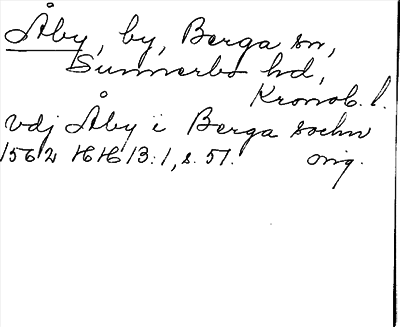 Åby, by, Berga sn,
Sunnerbo hd,
Kronob. l.
vdj Åby i Berga sochn
1562 HH 13:1, s. 57. orig.